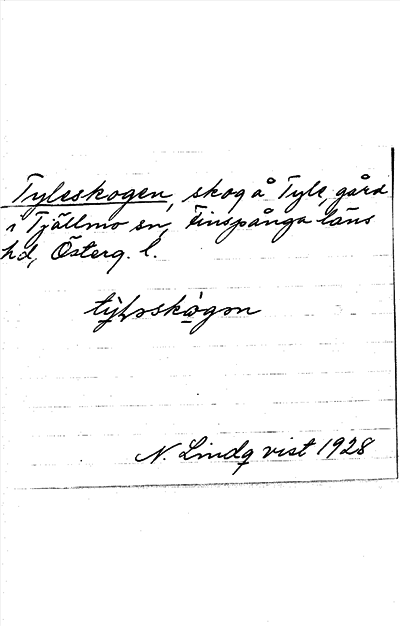 Tyleskogen, skog å Tyle, gård
i Tjällmo sn, Finspånga läns
hd, Österg. l.
N. Lindqvist 1928